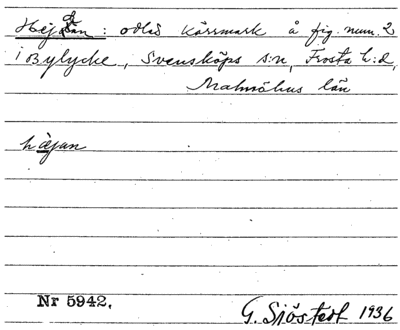 Hejdan: odlad kärrmark å fig. num. 2
i Bylycke, Svensköps s:n, Frosta h:d,
Malmöhus län
hæjan
Nr 5942.
G. Sjöstedt 1936